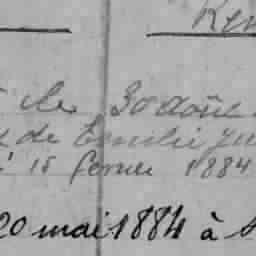 Ken
le 30 août
de Emilie
15 fevrier 1884
20 mai 1884 à